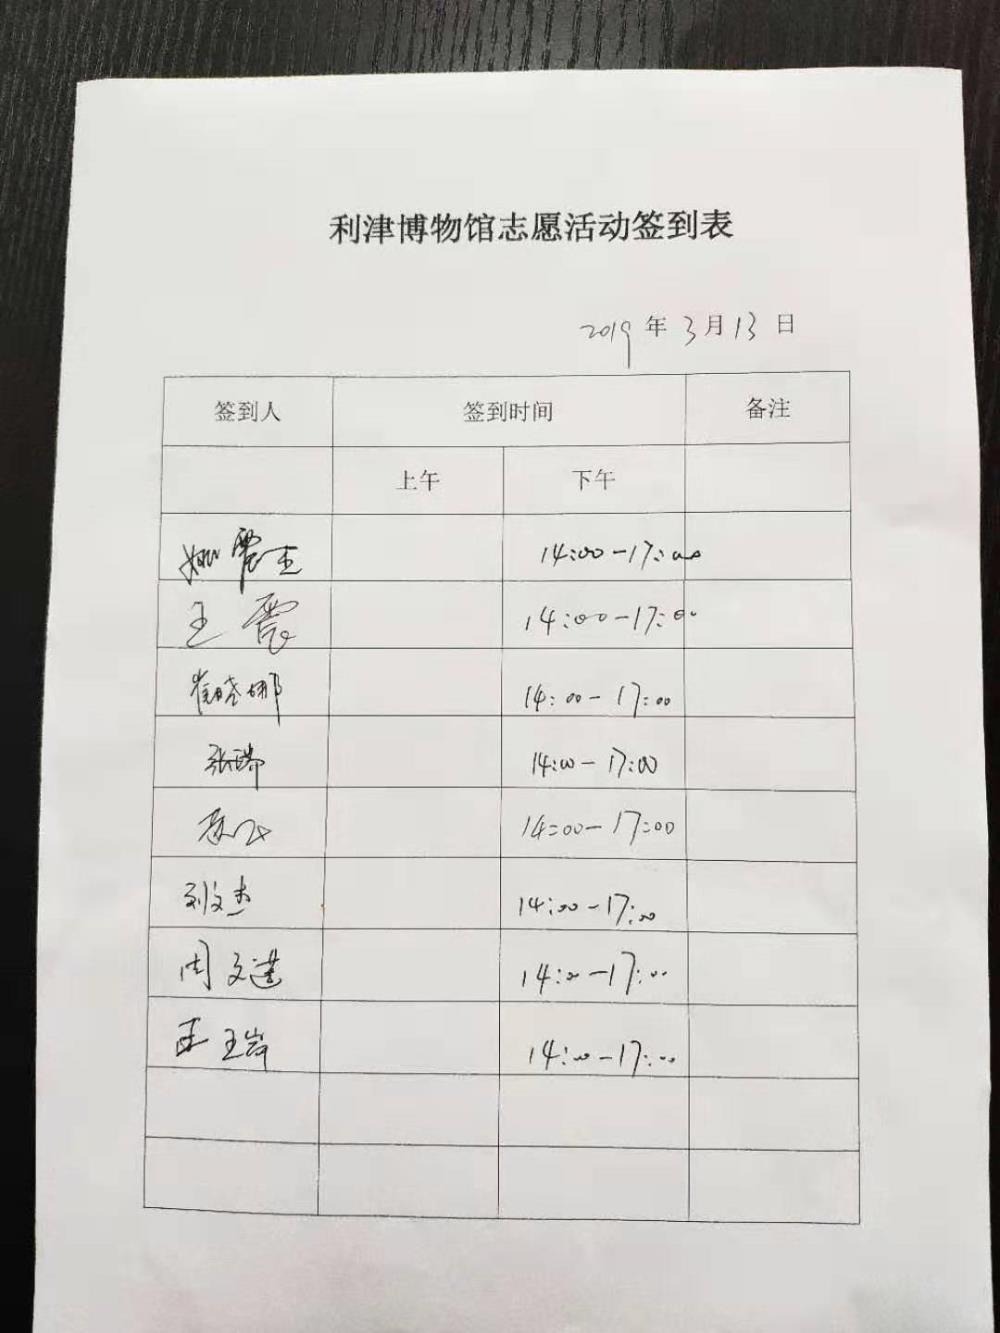 利津博物馆志愿活动签到表
2019年3月13日
签到人 签到时间 备注
上午 下午
14:00-17:00
王震 14:00-17:00
崔晓娜 14:00-17:00
张瑞 14:00-17:00
14:00-17:00
刘文杰 14:00-17:00
周文 14:00-17:00
14:00-17:00